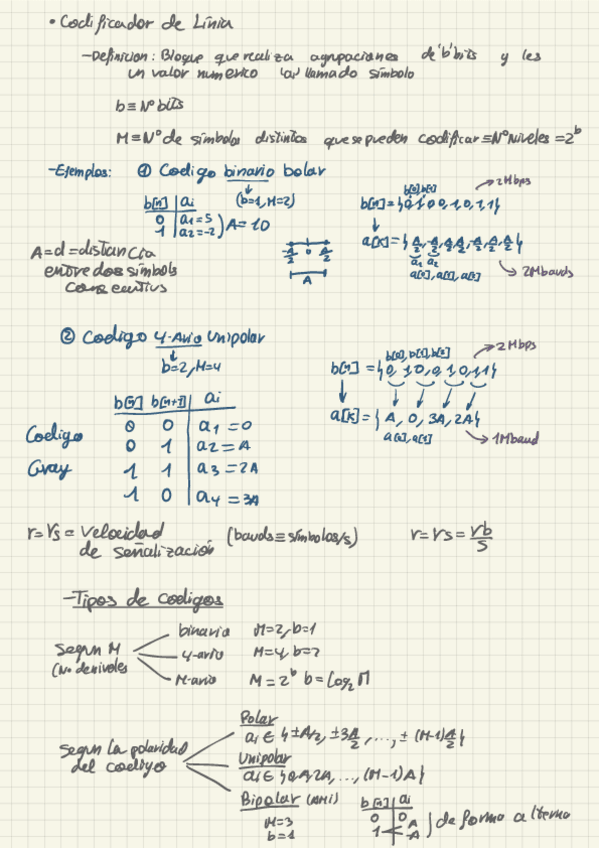 • Codificador de Línia
-Definicion: Bloque que realiza agrupaciones de 'b' bits y les
un valor numerico 'ai' llamado símbolo
b ≡ Nº bits
M ≡ Nº de símbolos distintos que se pueden codificar ≡ Nº Niveles = 2^b
-Ejemplos: ① Codigo binario bolar
(b=1, M=2)
b[n] | ai
0 | a1 = 5
1 | a2 = -2
) A = 10
A = d = distancia
entre dos símbols
consecutivs
-A/2 0 A/2
A
b[0] b[1]
b[n] = {0,1,0,0,1,0,1,1}
2Mbps
a1 a2
a[0], a[1], a[2]
2Mbauds
② Codigo 4-Ario Unipolar
b=2, M=4
Codigo
Gray
b[n] b[n+1] | ai
0 0 | a1 = 0
0 1 | a2 = A
1 1 | a3 = 2A
1 0 | a4 = 3A
b[0], b[1], b[2]
b[n] = {0, 1, 0, 0, 1, 0, 1, 1}
2Mbps
a[k] = {A, 0, 3A, 2A}
a[0], a[1]
1Mbaud
r = rs = Velocidad
de señalización
(bauds ≡ símbolos/s)
r = rs = rb/S
-Tipos de codigos
Segun M
(No de niveles
binario M=2, b=1
4-ario M=4, b=2
M-ario M = 2^b b = log2 M
Segun la polaridad
del codigo
Polar
ai ∈ {±A/2, ±3A/2, ..., ± (M-1)A/2}
Unipolar
ai ∈ {0, A, 2A, ..., (M-1)A}
Bipolar (AMI)
M=3
b=1
b[n] | ai
0 | 0
1 | A
-A
) de forma alterna